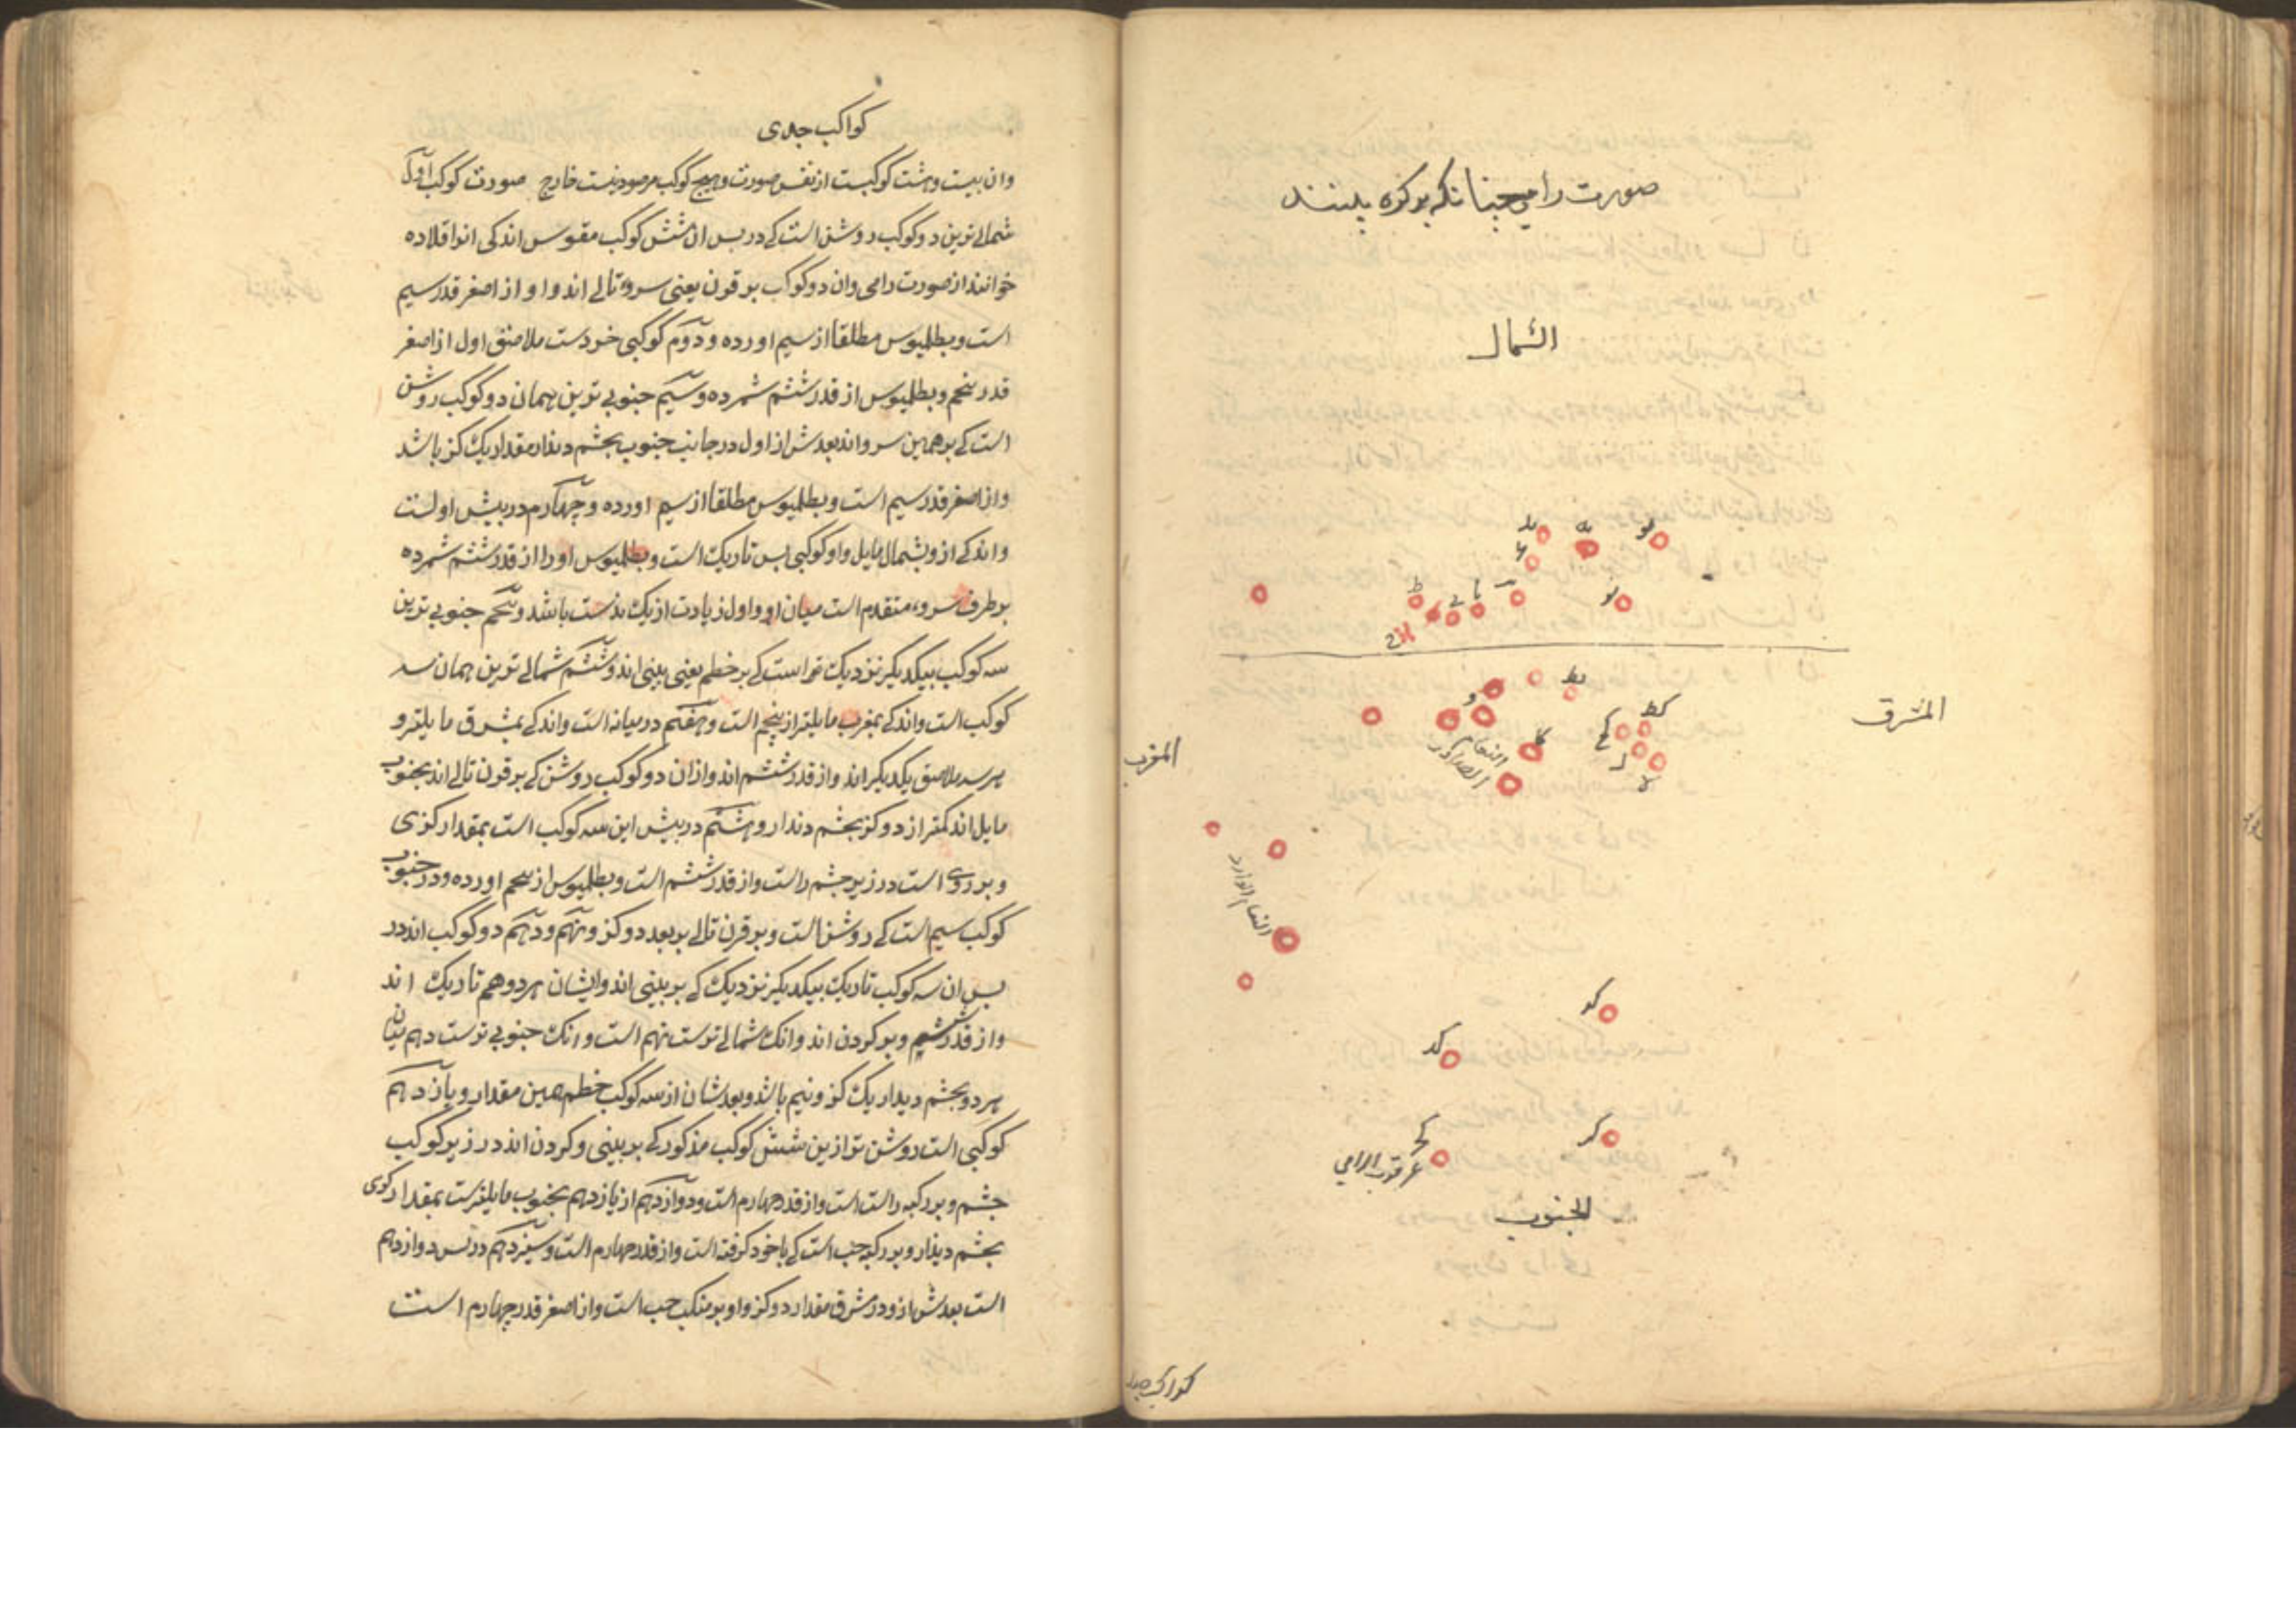 صورت رامی چنانکه بر کره بینند
الشمال
المشرق
المغرب
النعام الصادر
النعام الوارد
عرقوب الرامی
الجنوب
کواکب جدی
کواکب جدی
وان بیست و هشت کوکبست از نفس صورت و هیچ کوکب مرصود نیست خارج صورت کوکب اول
شمالی ترین دو کوکب روشن است کی در بس ان شش کوکب مقوس اند کی انرا قلاده
خوانند از صورت رامی وان دو کوکب بر قرن یعنی سرو تالی اند و او از اصغر قدر سیم
است و بطلیوس مطلقا از سیم اورده و دوم کوکبی خردست ملاصق اول از اصغر
قدر پنجم و بطلیوس از قدر ششم شمرده و سیم جنوبی ترین همان دو کوکب روشن
است کی بر همین سرو اند بعدش از اول در جانب جنوب بجشم دیدار مقدار یک کز باشد
واز اصغر قدر سیم است و بطلیوس مطلقا از سیم اورده و چهارم در بیش اولست
واندکی ازو بشمال مایل واو کوکبی بس تاریک است و بطلیوس اورا از قدر ششم شمرده
بر طرف سرو متقدم است میان او واول زیادت از یک بدست باشد و پنجم جنوبی ترین
سه کوکب بیکدیکر نزدیک تر است کی بر خطم یعنی بینی اند و ششم شمالی ترین همان سه
کوکب است واندکی بمغرب مایلتر از پنجم است و هفتم در میانه است واندکی بمشرق مایلتر و
هر سه ملاصق یکدیکر اند واز قدر ششم اند وازان دو کوکب روشن کی بر قرن تالی اند بجنوب
مایل اند کمتر از دو کز بجشم دیدار و هشتم در بیش این سه کوکب است بمقدار کزی
و بر روی است در زیر چشم راست واز قدر ششم است و بطلیوس از پنجم اورده و در جنوب
کوکب سیم است کی روشن است و بر قرن تالی بر بعد دو کز و نهم و دهم دو کوکب اند در
بس ان سه کوکب تاریک بیکدیکر نزدیک کی بر بینی اند وایشان هر دو هم تاریک اند
واز قدر ششم و بر کردن اند وانک شمالی ترست نهم است وانک جنوبی ترست دهم میان
هر دو بجشم دیدار یک کز و نیم باشد و بعدشان از سه کوکب خطم همین مقدار و یازدهم
کوکبی است روشن تر ازین شش کوکب مذکور کی بر بینی و کردن اند در زیر کوکب
چشم و بر رکبه راست است واز قدر چهارم است و دوازدهم از یازدهم بجنوب مایلترست بمقدار کزی
بجشم دیدار و بر رکبه چپ است کی باخود کرفته است واز قدر چهارم است و سیزدهم در بس دوازدهم
است بعدش ازو در مشرق مقدار دو کز واو بر منکب چپ است واز اصغر قدر چهارم است